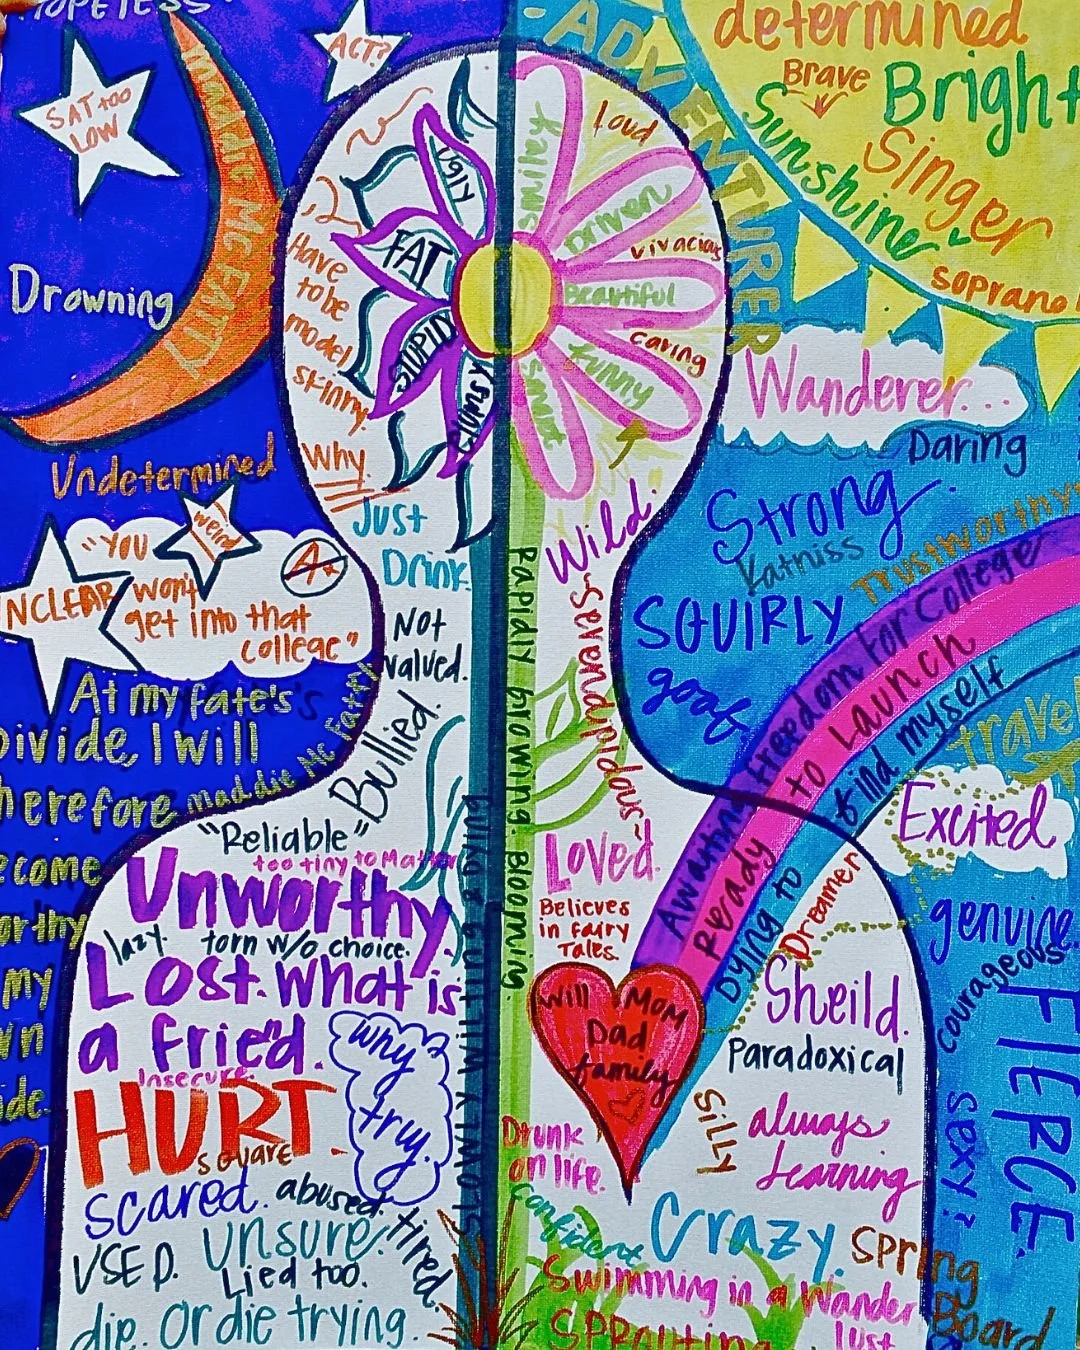 HOPELESS
SAT too
LOW
ACT?
Maddie McFATTY
Drowning
Undetermined
weird
UNCLEAR
"YOU
won't
get into that
college"
A+
At my fate's
Divide, I will
therefore
become
worthy
my
own
side.
maddie McFatty
UGLY
FAT
STUPID
Have
to be
model
skinny
Why.
Just
Drink.
Not
valued.
Bullied.
"Reliable"
too tiny to Matter
Unworthy.
lazy.
torn w/o choice.
Lost. What is
a fried.
Insecure.
HURT
square
why
try.
scared.
abused.
USED.
Unsure.
tired.
Lied too.
die. Or die trying.
Slowly wilting & dying
Rapidly growing. Blooming.
-ADVENTURER
determined
Brave
Bright
Sunshine
Singer
soprano
smiley
Loud
Driven
vivacious
Beautiful
caring
funny
smart
Wanderer...
Daring
Strong.
Katniss
Trustworthy
SQUIRLY
goat
Wild.
~Serendipidous~
Awaiting freedom for College
Ready to Launch
Dying to find myself
travel
Excited
Loved.
Believes
in fairy
Tales.
Dreamer
genuine.
courageous
FIERCE.
Will
Mom
Dad
family
Sheild.
Paradoxical
Silly
always
learning
sexy
Drunk
on life.
confident
Crazy.
Spring
Board
Swimming in a Wander
lust
SPROUTING